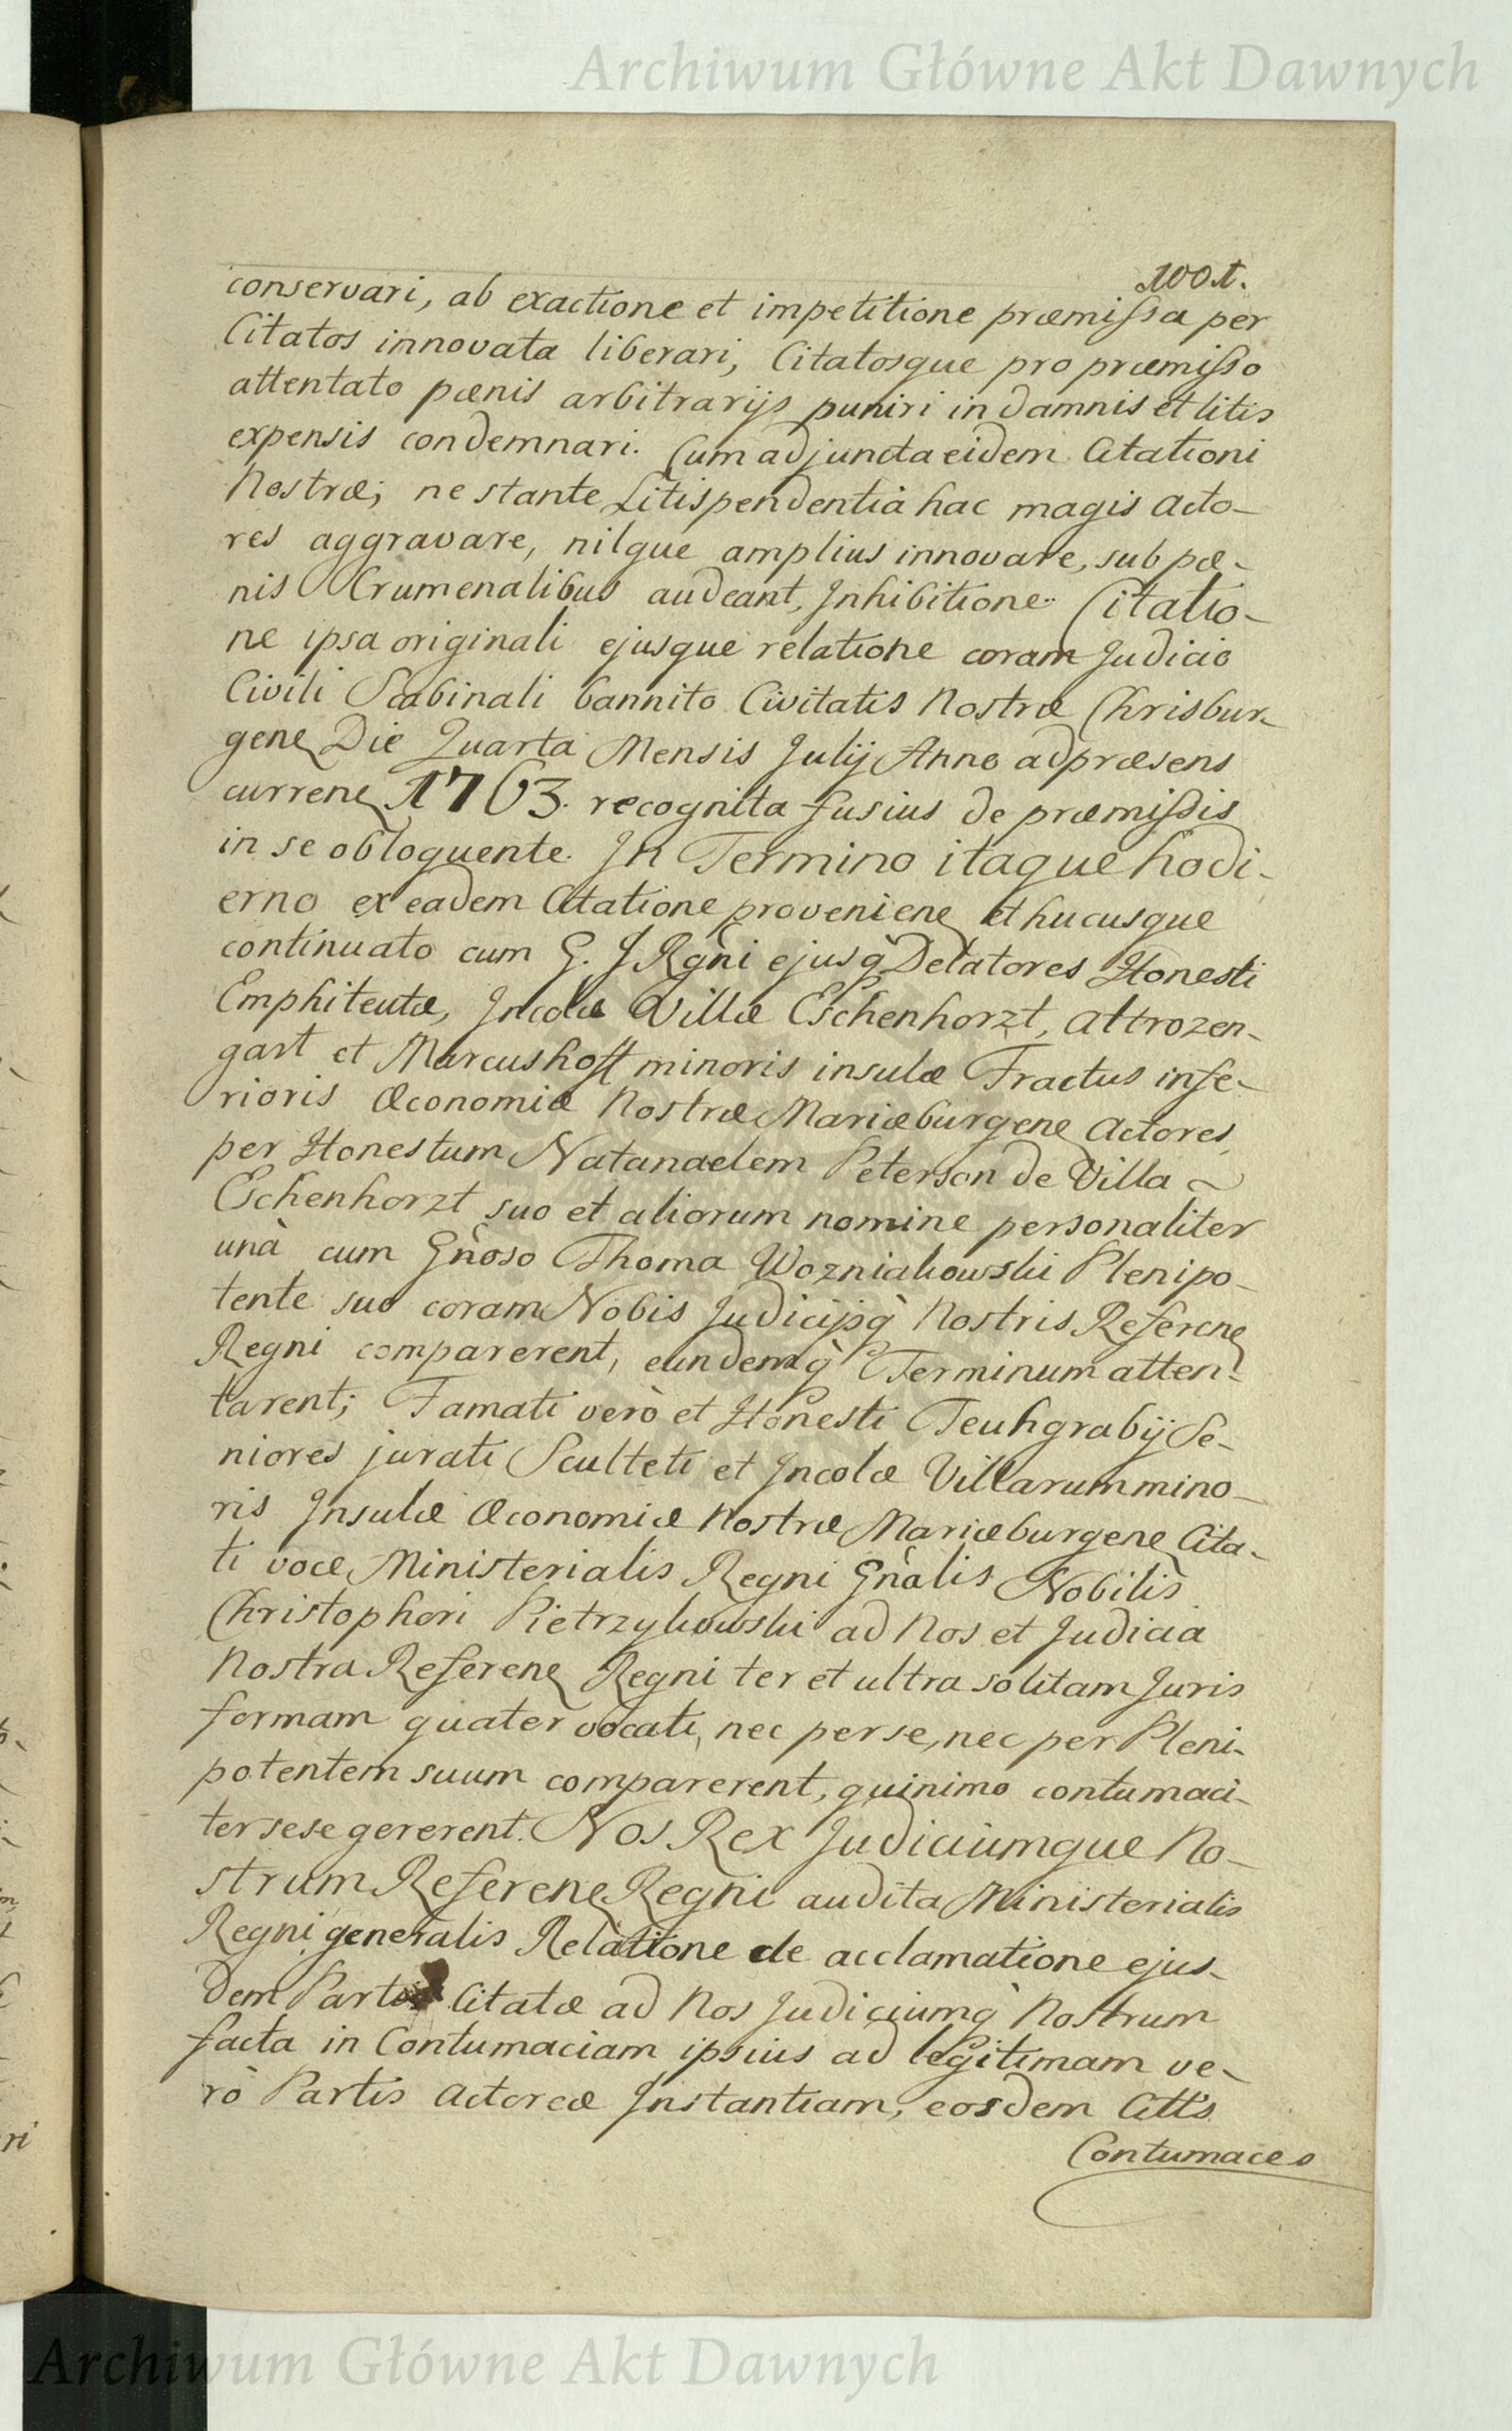 Archiwum Główne Akt Dawnych
1001.
conservari, ab exactione et impetitione præmissa per
Citatos innovata liberari, Citatosque pro præmisso
attentato pænis arbitrarijs puniri in damnis et litis
expensis condemnari. Cum adjuncta eidem Citationi
Nostræ; ne stante Litispendentia hac magis Acto-
res aggravare, nilque amplius innovare, sub pæ-
nis Crumenalibus audeant, Inhibitione. Citatio-
ne ipsa originali ejusque relatione coram Judicio
Civili Scabinali bannito Civitatis Nostræ Chrisbur-
gen Die Quarta Mensis Julij Anno ad præsens
curren 1763. recognita fusius de præmissis
in se obloquente. In Termino itaque hodi-
erno ex eadem Citatione provenien et hucusque
continuato cum G. J. Rgni ejusq Delatores Honesti
Emphiteutæ, Incolæ Villæ Eschenhorzt, Altrozen-
gart et Marcushoff minoris insulæ Tractus infe-
rioris Œconomiæ Nostræ Mariæburgen Actores
per Honestum Natanaelem Peterson de Villa
Eschenhorzt suo et aliorum nomine personaliter
unà cum Gnoso Thoma Wozniakowski Plenipo-
tente suo coram Nobis Judicijsq Nostris Referen
Regni comparerent, eundemq Terminum atten-
tarent; Famati verò et Honesti Teuhgrabij Se-
niores jurati Sculteti et Incolæ Villarum mino-
ris Insulæ Œconomiæ Nostræ Mariæburgen Cita-
ti voce Ministerialis Regni Gnàlis Nobilis
Christophori Pietrzykowski ad Nos et Judicia
Nostra Referen Regni ter et ultra solitam Juris
formam quater vocati, nec per se, nec per Pleni-
potentem suum comparerent, quinimo contumaci-
ter sese gererent. Nos Rex Judiciumque No-
strum Referen Regni audita Ministerialis
Regni generalis Relatione de acclamatione ejus-
dem Partis Citatæ ad Nos Judiciumq Nostrum
facta in Contumaciam ipsius ad legitimam ve-
rò Partis Actoreæ Instantiam, eosdem Citts
Contumaces
Archiwum Główne Akt Dawnych